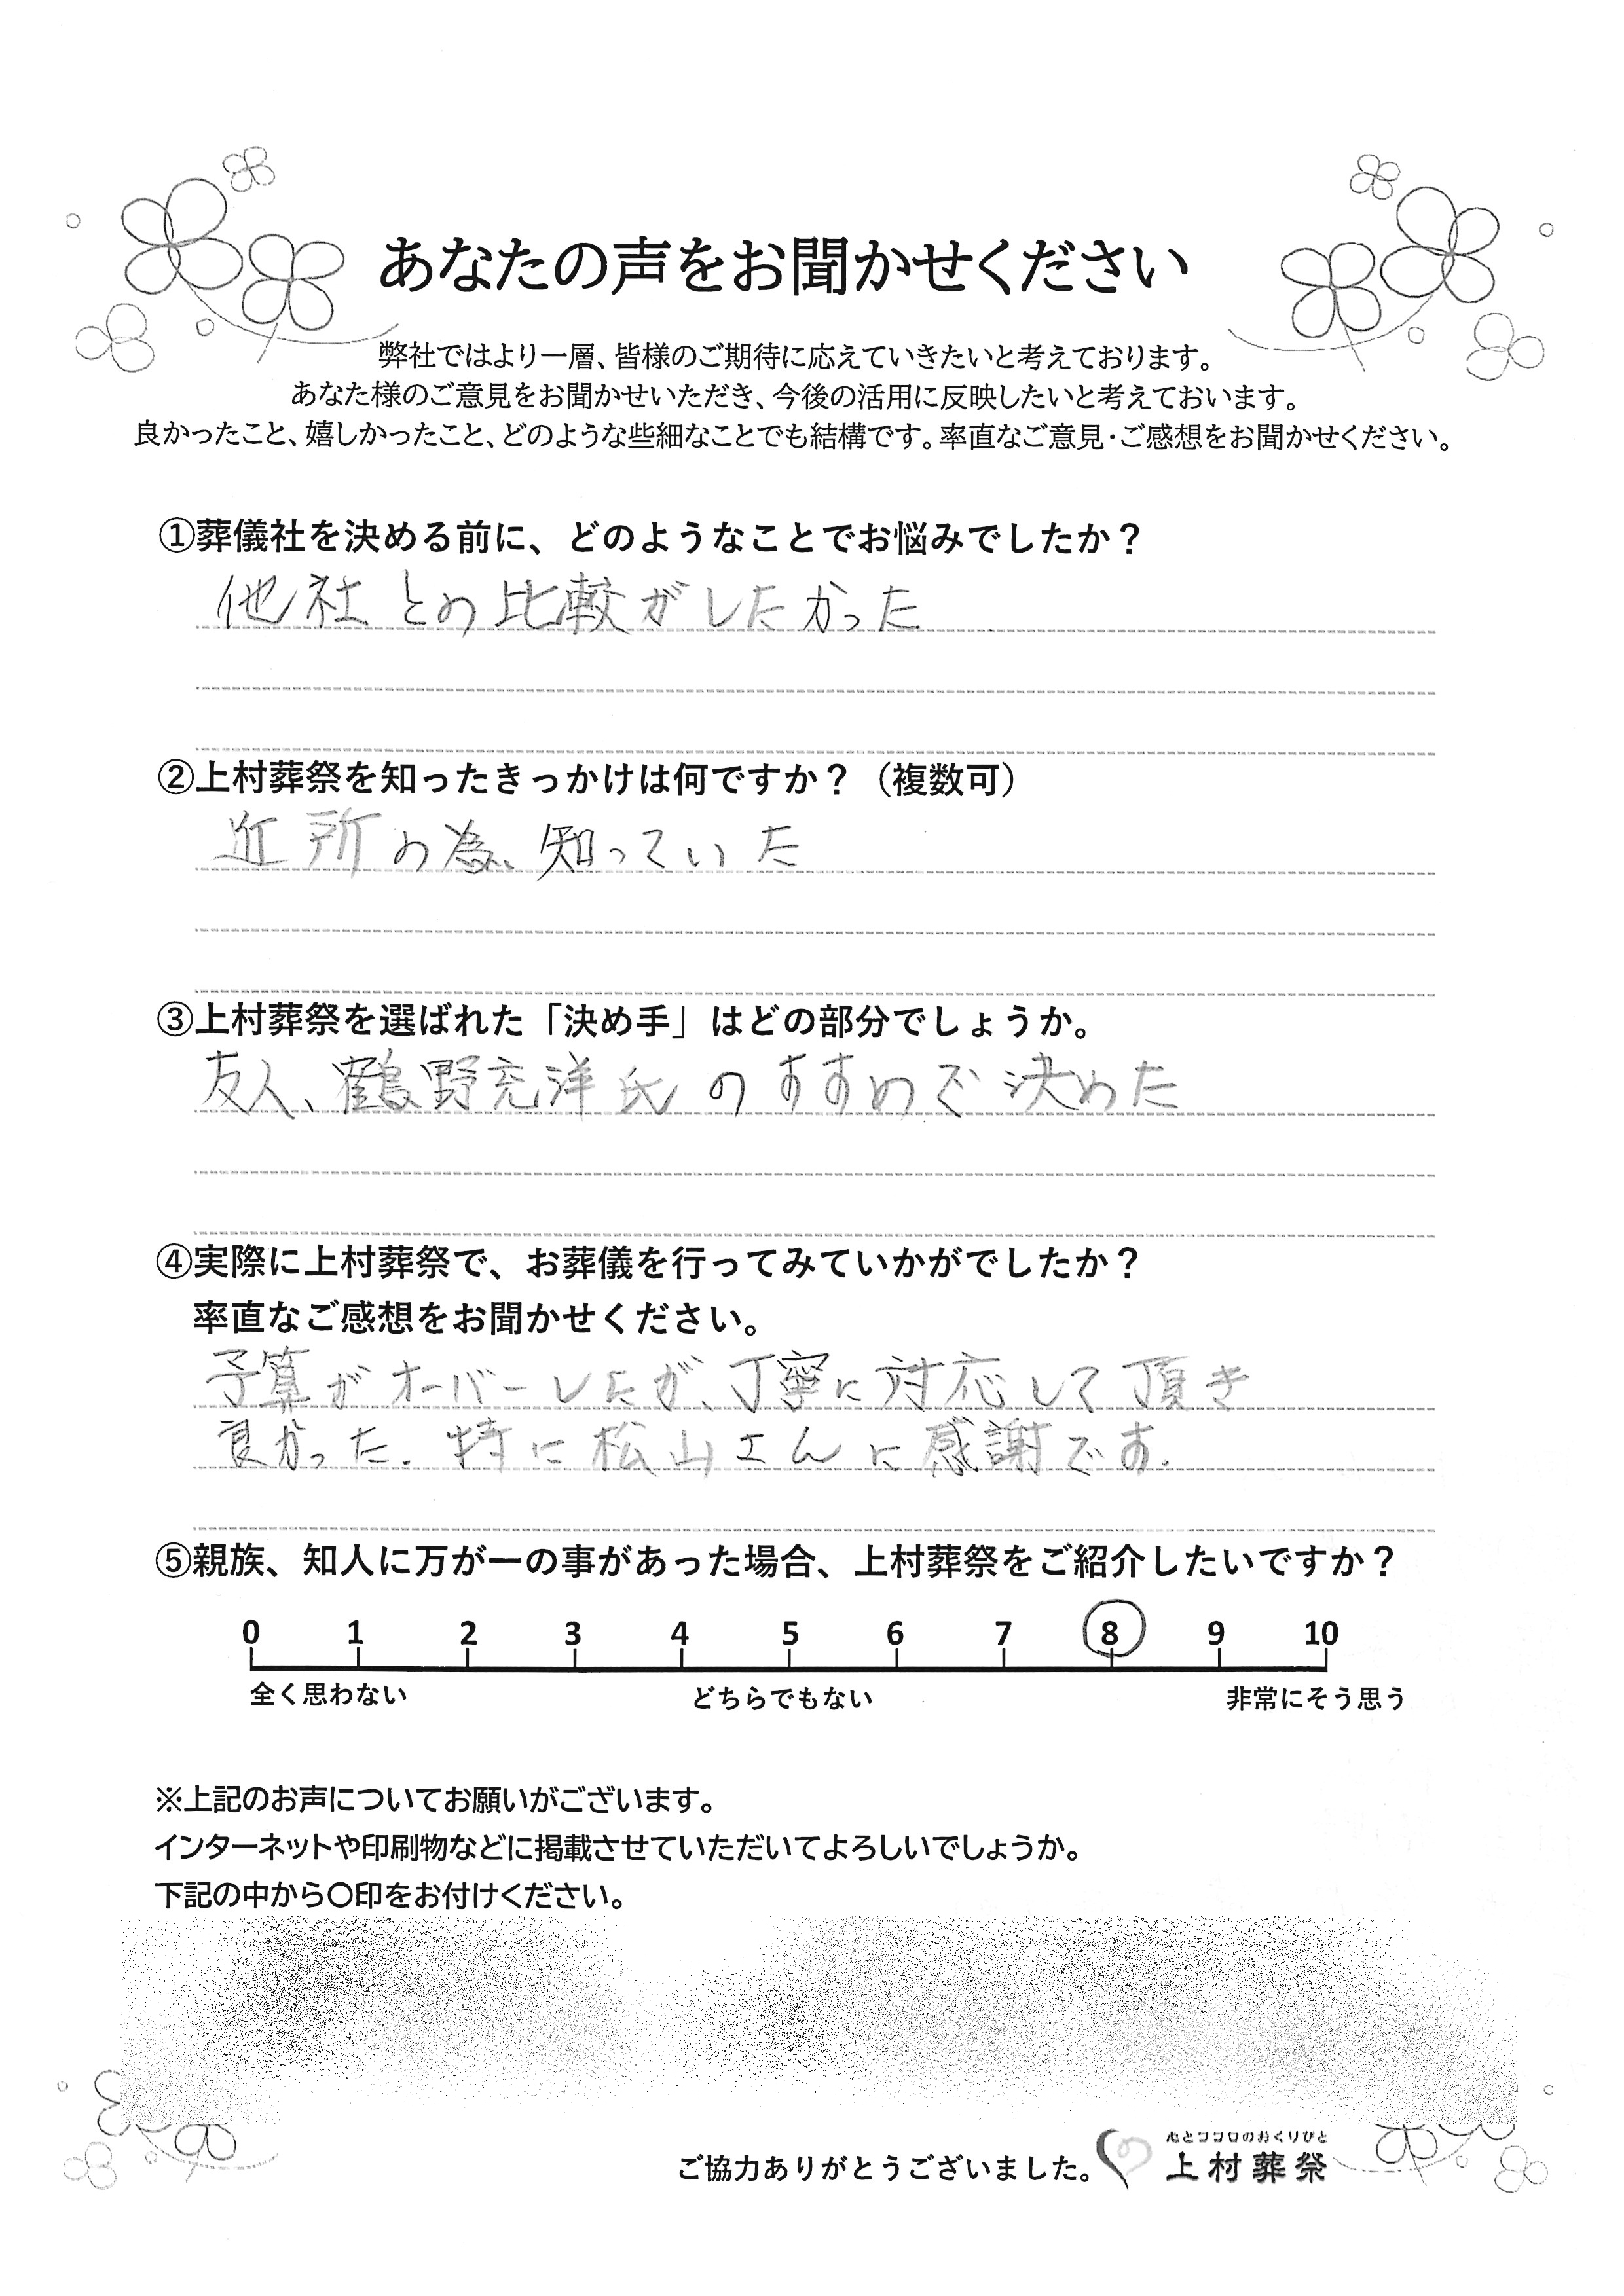 あなたの声をお聞かせください
弊社ではより一層、皆様のご期待に応えていきたいと考えております。
あなた様のご意見をお聞かせいただき、今後の活用に反映したいと考えておいます。
良かったこと、嬉しかったこと、どのような些細なことでも結構です。率直なご意見・ご感想をお聞かせください。
①葬儀社を決める前に、どのようなことでお悩みでしたか？
他社との比較がしたかった
②上村葬祭を知ったきっかけは何ですか？（複数可）
近所の為、知っていた
③上村葬祭を選ばれた「決め手」はどの部分でしょうか。
友人、鶴野充洋氏のすすめで決めた
④実際に上村葬祭で、お葬儀を行ってみていかがでしたか？
率直なご感想をお聞かせください。
予算がオーバーしたが、丁寧に対応して頂き
良かった。特に松山さんに感謝です。
⑤親族、知人に万が一の事があった場合、上村葬祭をご紹介したいですか？
0 1 2 3 4 5 6 7 8 9 10
全く思わない どちらでもない 非常にそう思う
※上記のお声についてお願いがございます。
インターネットや印刷物などに掲載させていただいてよろしいでしょうか。
下記の中から〇印をお付けください。
心とココロのおくりびと
ご協力ありがとうございました。 上村葬祭